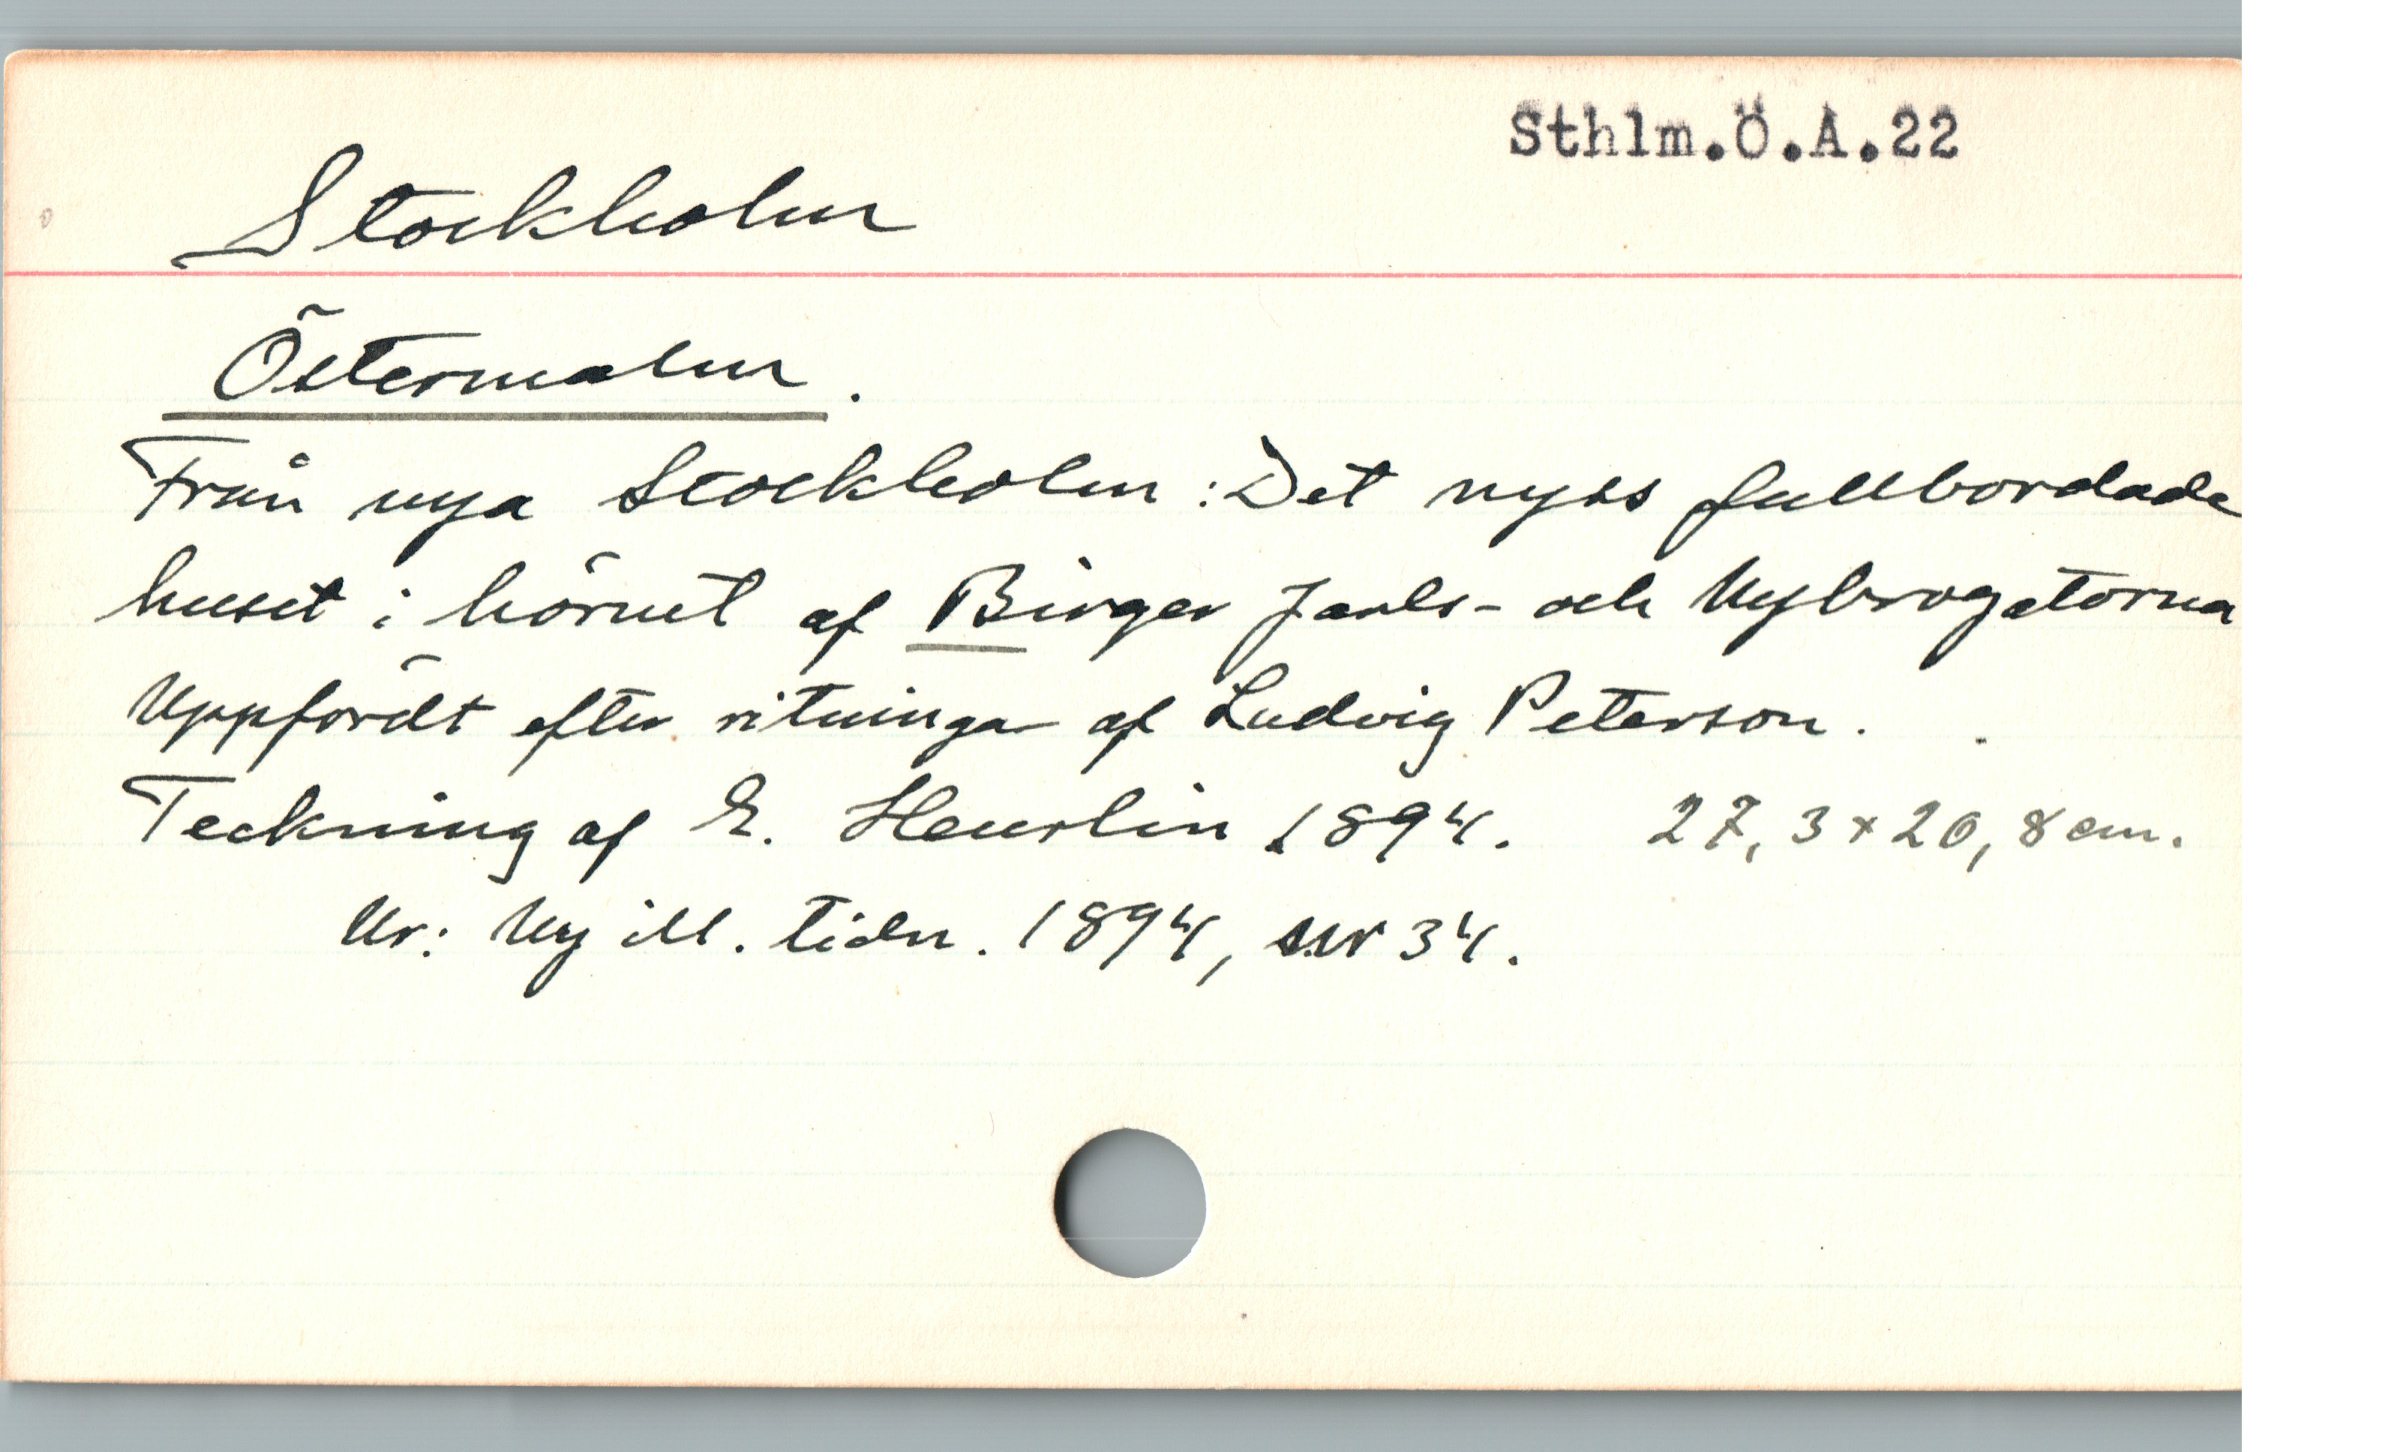 Sthlm.Ö.A.22
Stockholm
Östermalm.
Från nya Stockholm: Det nyss fullbordade
huset i hörnet af Birger Jarls- och Nybrogatorna
Uppfördt efter ritningar af Ludvig Peterson.
Teckning af E. Heurlin 1894. 27,3 x 20,8 cm.
Ur: Ny ill. tidn. 1894, nr 34.